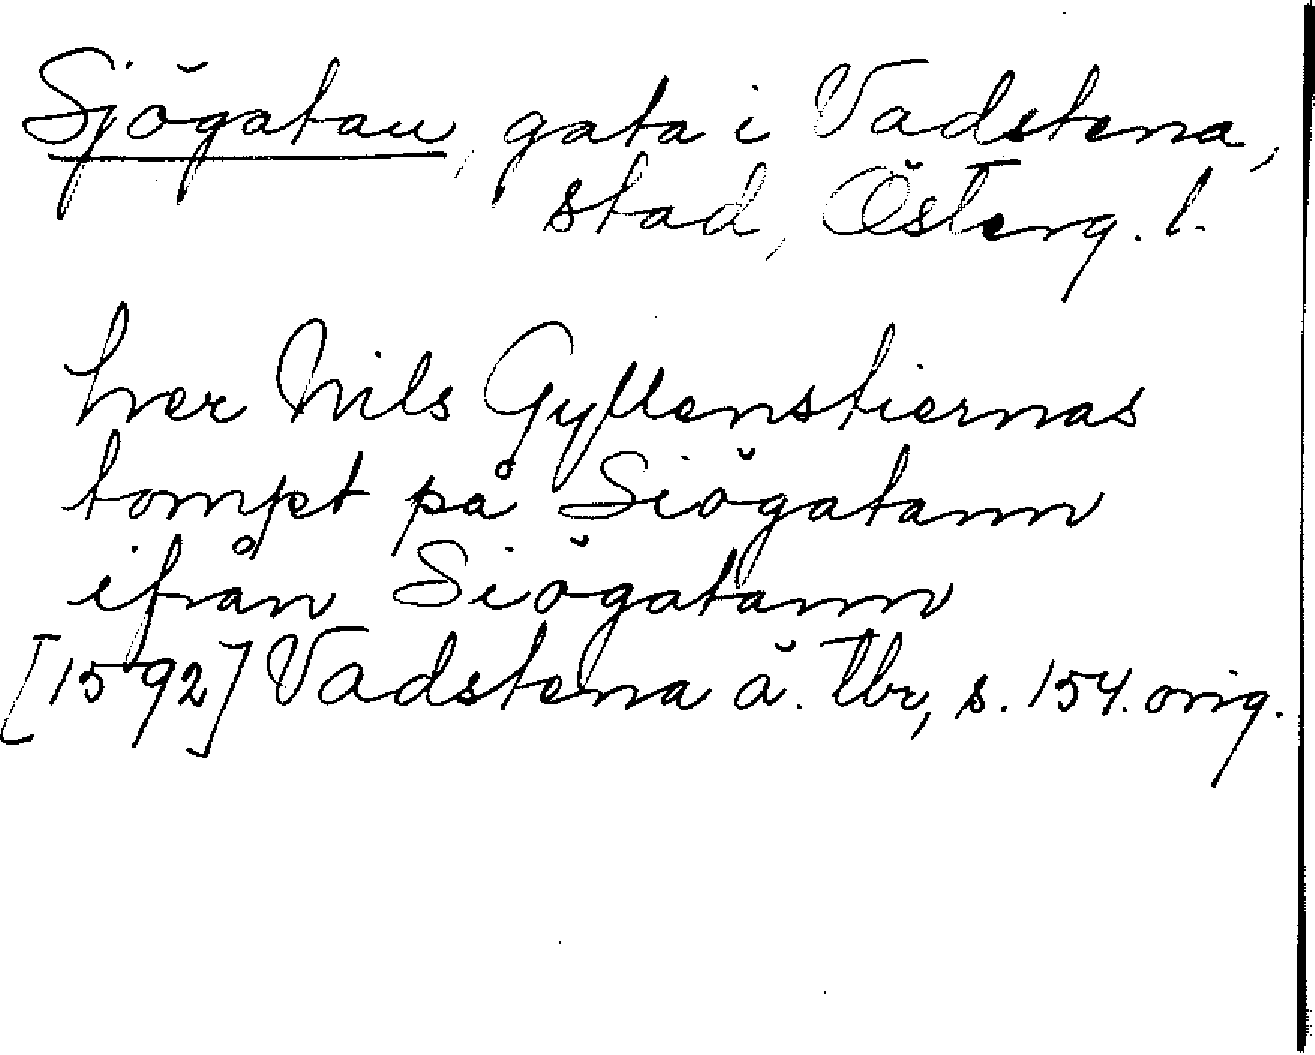 Sjögatan, gata i Vadstena,
stad, Österg. l.
her Nils Gyllenstiernas
tompt på Siögatann
ifrån Siögatann
[1592] Vadstena ä. tbr, s. 154. orig.